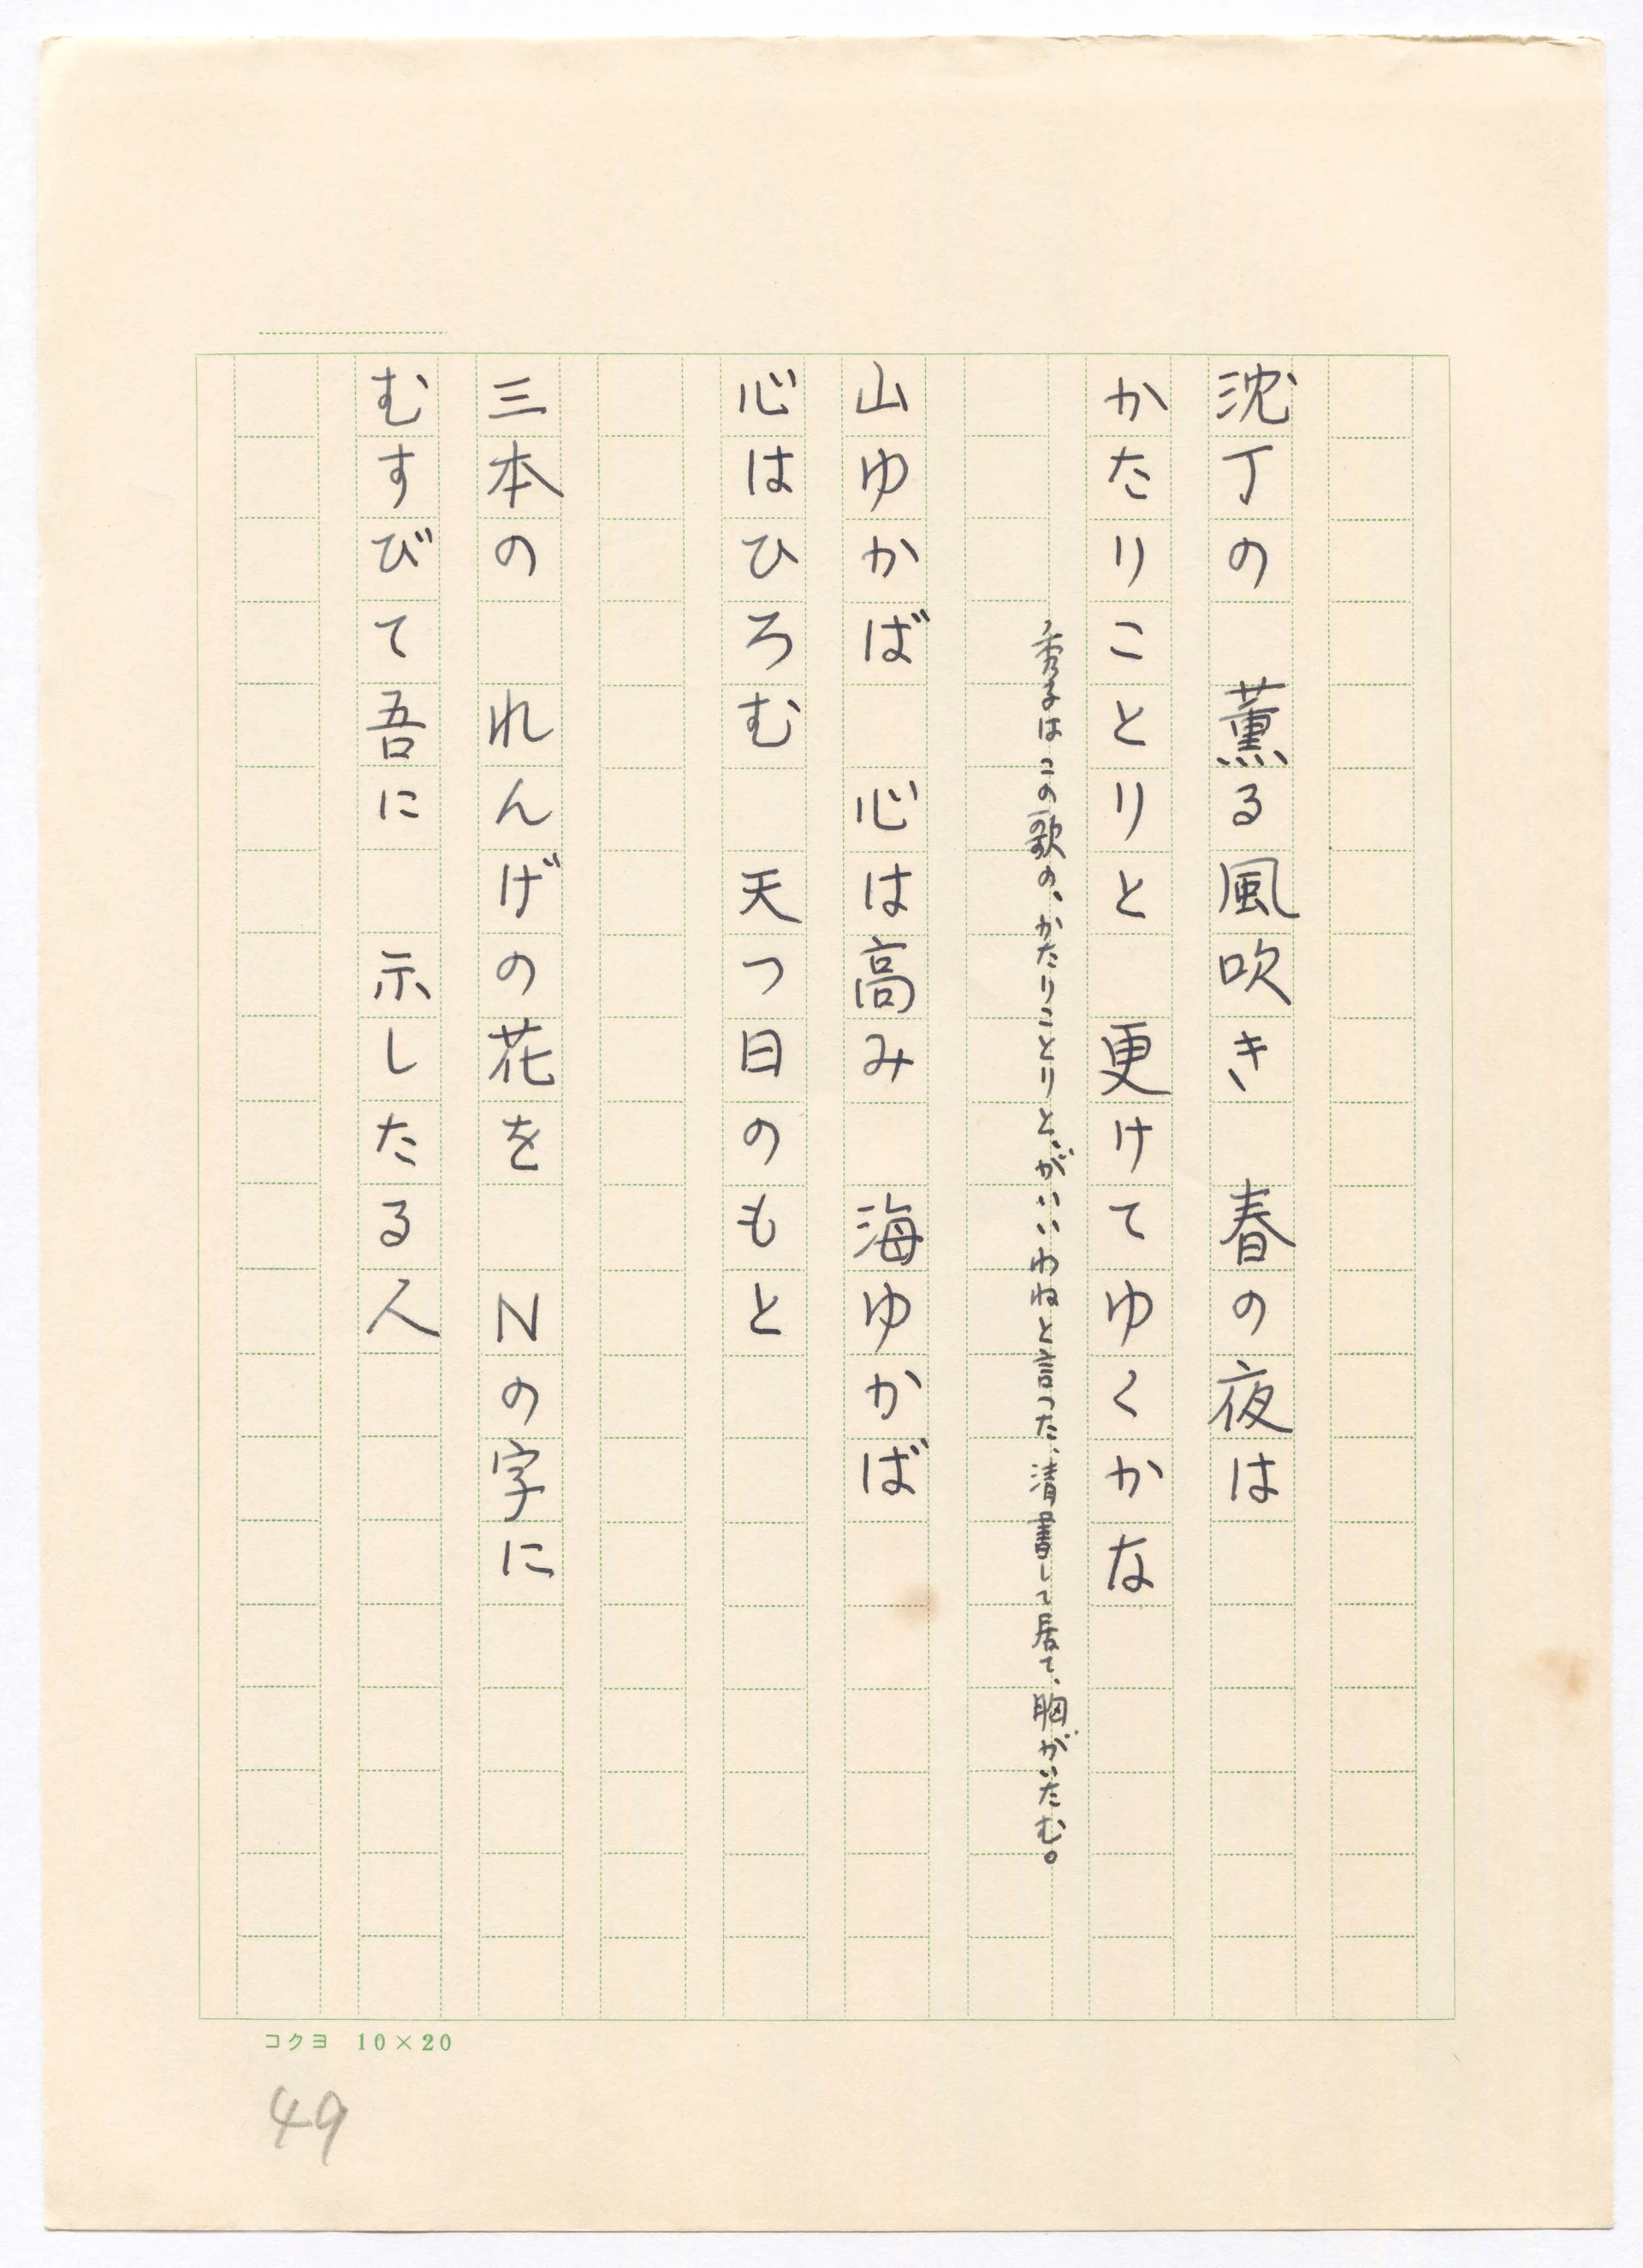 沈丁の　薫る風吹き　春の夜は
かたりことりと　更けてゆくかな
秀子はこの歌の、かたりことりと、がいいわねと言った、清書して居て、胸がいたむ。
山ゆかば　心は高み　海ゆかば
心はひろむ　天つ日のもと
三本の　れんげの花を　Nの字に
むすびて吾に　示したる人
コクヨ 10×20
49